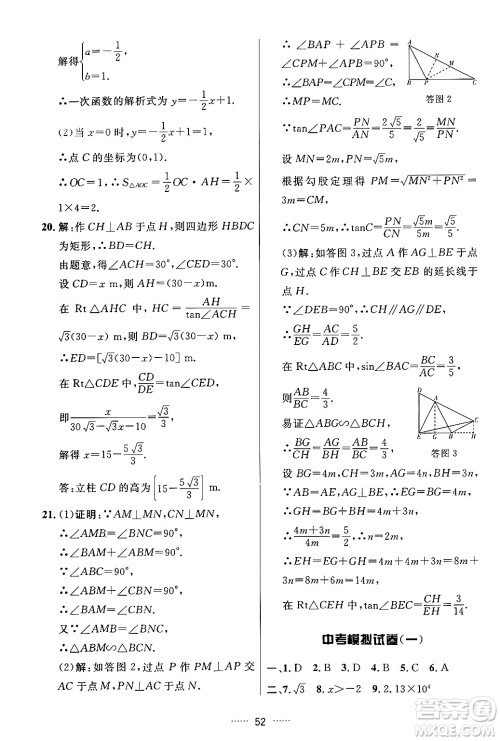 解得{a=-1/2, b=1.
∴一次函数的解析式为 y=-1/2x+1.
(2)当 x=0 时, y=-1/2x+1=1,
∴点 C 的坐标为(0,1).
∴OC=1, ∴S△AOC=1/2OC·AH=1/2×
1×4=2.
20. 解:作 CH⊥AB 于点 H,则四边形 HBDC
为矩形, ∴BD=CH.
由题意,得∠ACH=30°, ∠CED=30°.
设 CD=x m,则 AH=(30-x) m.
在 Rt△AHC 中, HC=AH/tan∠ACH=
√3(30-x) m,则 BD=CH=√3(30-x) m.
∴ED=[√3(30-x)-10] m.
在 Rt△CDE 中, CD/DE=tan∠CED,
即x/(30√3-√3x-10)=√3/3,
解得 x=15-5√3/3.
答:立柱 CD 的高为[15-5√3/3] m.
21. (1)证明:∵AM⊥MN, CN⊥MN,
∴∠AMB=∠BNC=90°.
∴∠BAM+∠ABM=90°.
∵∠ABC=90°,
∴∠ABM+∠CBN=90°.
∴∠BAM=∠CBN.
又∵∠AMB=∠BNC,
∴△ABM∽△BCN.
(2)解:如答图 2,过点 P 作 PM⊥AP
交 AC 于点 M,过点 M 作 MN⊥PC 于
点 N.
∴∠BAP+∠APB=
∠CPM+∠APB=90°.
∴∠BAP=∠CPM=∠C.
∴MP=MC.
A
N
M
B
P
C
答图 2
∵tan∠PAC=PM/AM=2/√5=2√5/5=MN/PN,
设 MN=2m,则 PN=√5m,
根据勾股定理得 PM=√(MN²+PN²)=
3m,
∴CN=√5m, ∴tan C=MN/CN=2√5/5.
(3)解:如答图 3,过点 A 作 AG⊥BE 于点
G,过点 C 作 CH⊥BE 交 EB 的延长线于
点 H.
∵∠DEB=90°,
∴CH∥AG∥DE.
∴GH/EG=AC/AD=5/2.
在 Rt△ABC 中, sin∠BAC=BC/AC=3/5,
则AB/BC=4/3.
易证△ABG∽△BCH.
∴BG/CH=AG/BH=AB/BC=4/3.
答图 3
设 BG=4m, CH=3m, AG=4n, BH=3n,
∵AB=AE, AG⊥BE, ∴EG=BG=4m.
∴GH=BG+BH=4m+3n.
∴(4m+3n)/4m=5/2. ∴n=2m.
∴EH=EG+GH=4m+4m+3n=8m+
3n=8m+6m=14m.
在 Rt△CEH 中, tan∠BEC=CH/EH=3/14.
中考模拟试卷(一)
一、1. D 2. B 3. A 4. C 5. C 6. A
二、7. √3 8. x>-2 9. 2.13×10⁴
52